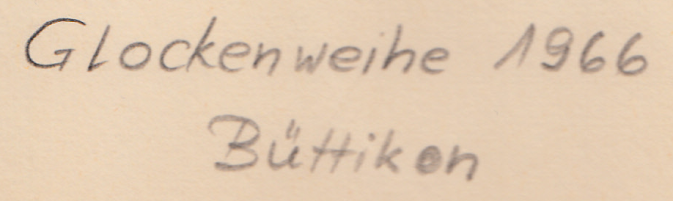 Glockenweihe 1966
Büttikon